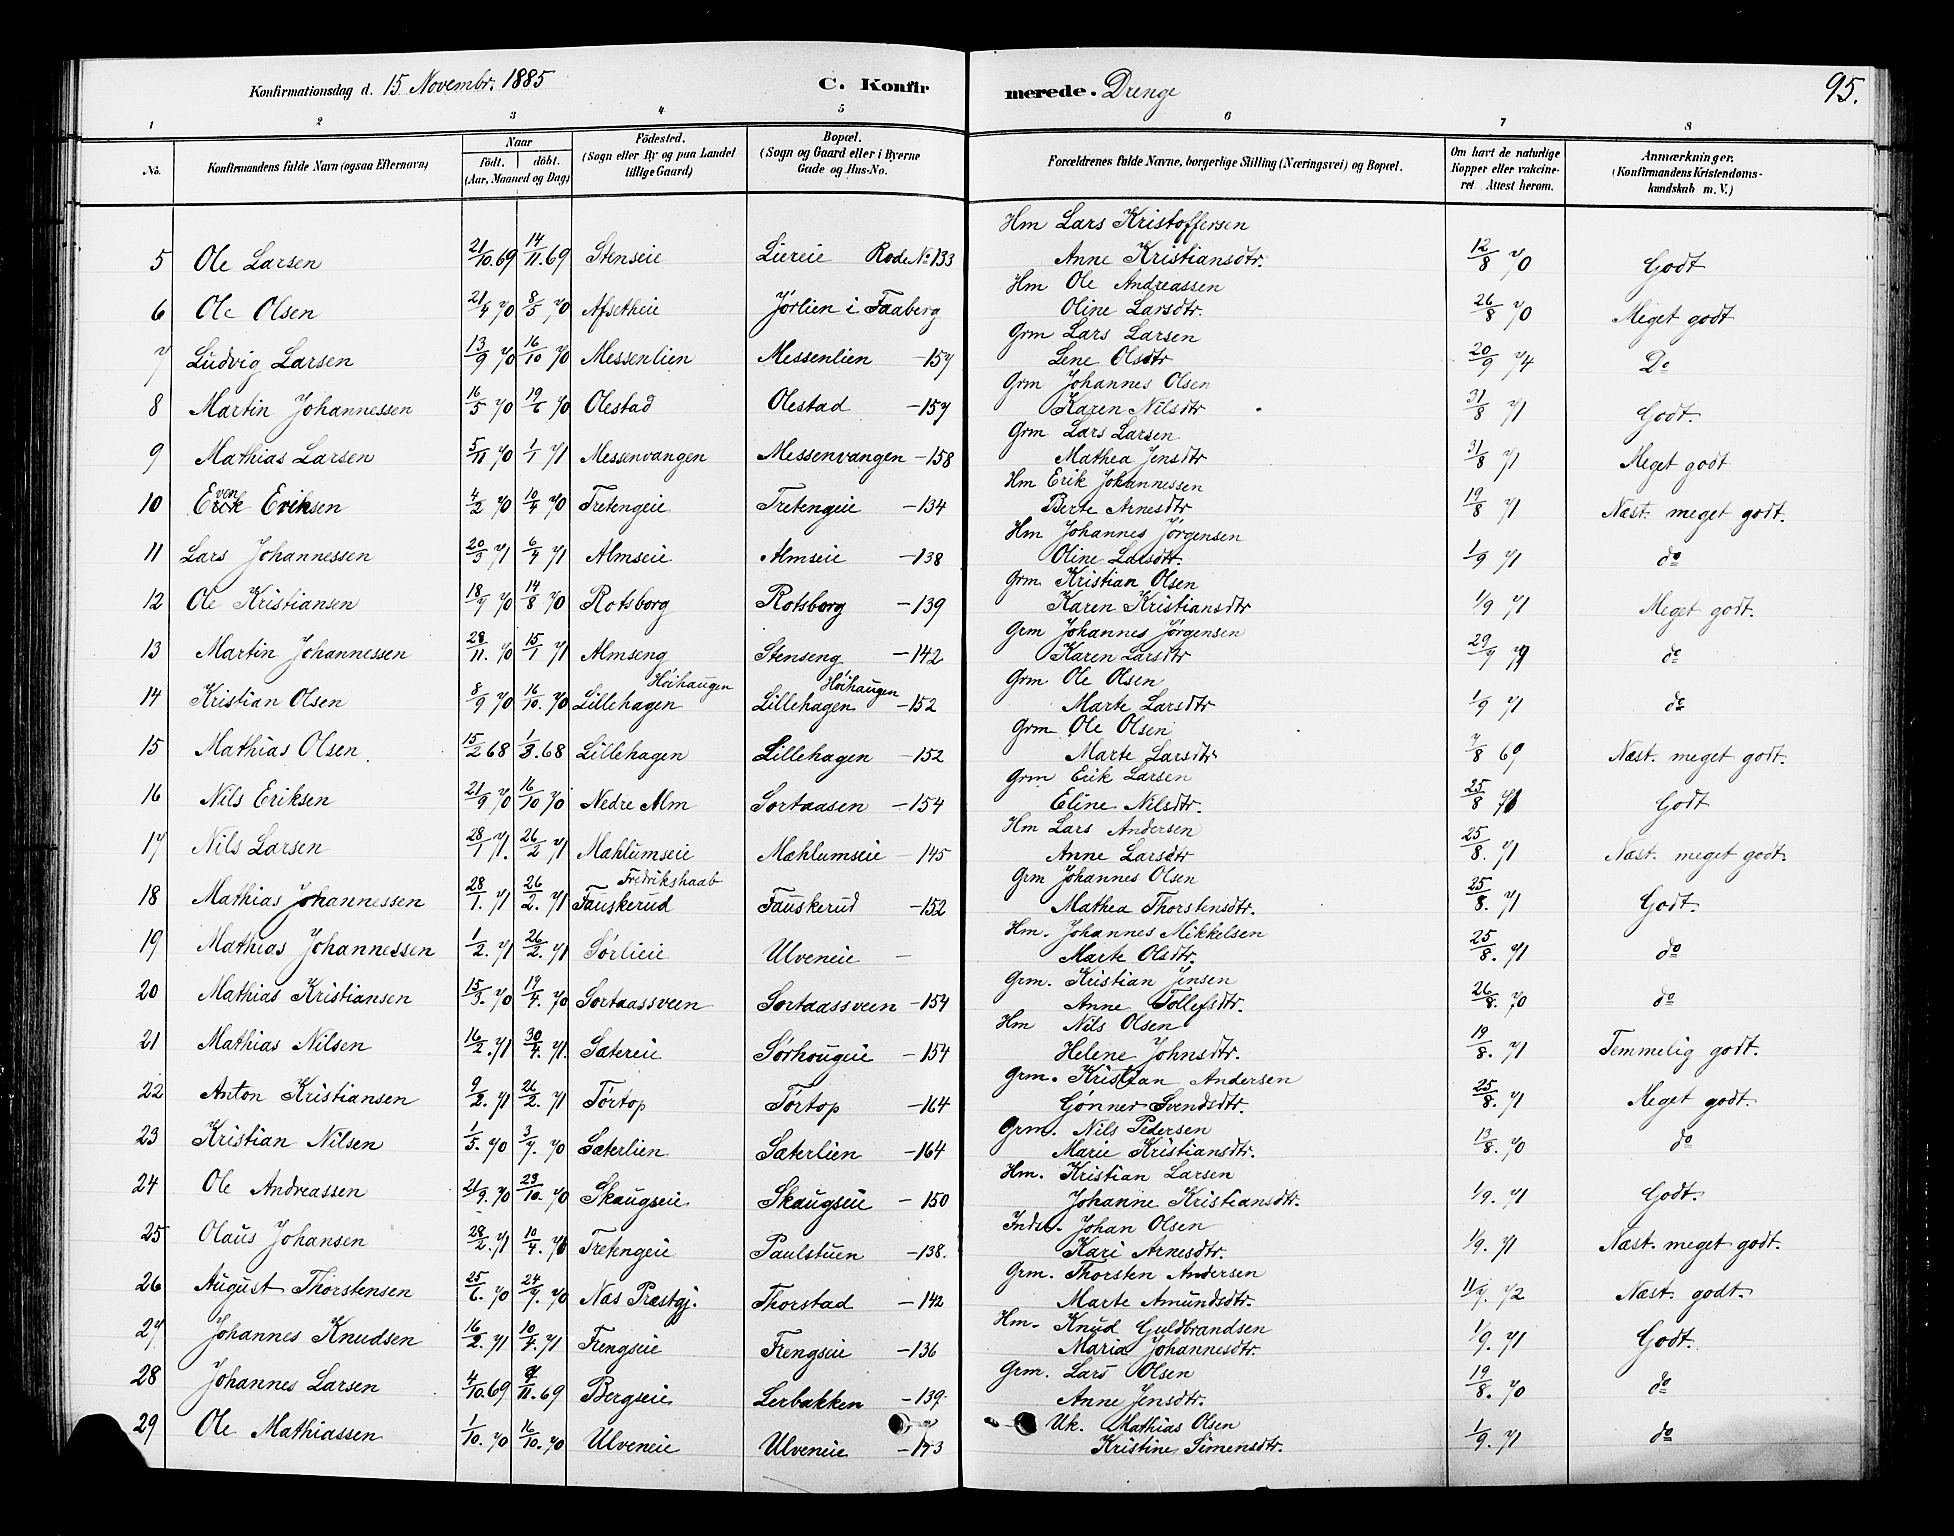 Konfirmationsdag d. 15 Novembr. 1885 C. Konfirmerede. Drenge 95.
1 2 3 4 5 6 7 8
No. Konfirmandens fulde Navn (ogsaa Efternavn) Naar födt. döbt. (Aar, Maaned og Dag) Födested. (Sogn eller By og paa Landet tillige Gaard) Bopæl. (Sogn og Gaard eller i Byerne Gade og Hus-No. Forældrenes fulde Navne, borgerlige Stilling (Næringsvei) og Bopæl. Om havt de naturlige Kopper eller vakcineret Attest herom. Anmærkninger. (Konfirmandens Kristendomskundskab m. V.)
Hm Lars Kristoffersen
5 Ole Larsen 21/10 69 14/11 69 Stenseie Liereie Rode No 133 Anne Kristiansdtr. 12/8 70 Godt
Hm Ole Andreassen
6 Ole Olsen 21/4 70 8/5 70 Afsetheie Jørlien i Faaberg Oline Larsdtr. 26/8 70 Meget godt
Grm Lars Larsen
7 Ludvig Larsen 13/9 70 16/10 70 Messenlien Messenlien -157 Lene Olsdtr 20/9 74 Do
Grm Johannes Olsen
8 Martin Johannessen 16/5 70 19/6 70 Olestad Olestad -157 Karen Nilsdtr 31/8 71 Godt.
Grm Lars Larsen
9 Mathias Larsen 5/11 70 1/1 71 Messenvangen Messenvangen -158 Mathea Jensdtr 31/8 71 Meget godt
Hm Erik Johannessen
10 Even Eriksen 4/2 70 10/4 70 Tretengeie Tretengeie -134 Berte Arnesdtr 19/8 71 Næst. meget godt.
Hm Johannes Jörgensen
11 Lars Johannessen 20/3 71 6/4 71 Almseie Almseie -138 Oline Larsdtr. 1/9 71 do
Grm Kristian Olsen
12 Ole Kristiansen 18/7 70 14/8 70 Rotsborg Rotsborg -139 Karen Kristiansdtr 1/9 71 Meget godt.
Grm Johannes Jørgensen
13 Martin Johannessen 28/11. 70 15/1 71 Almseng Stenseng -142 Karen Larsdtr 29/7 do
Høihaugen Høihaugen Grm Ole Olsen
14 Kristian Olsen 8/9 70 16/10. 70 Lillehagen Lillehagen -152 Marte Larsdtr 1/9 71 do
Grm Ole Olsen
15 Mathias Olsen. 15/2 68 1/3. 68 Lillehagen Lillehagen -152 Marte Larsdtr 7/8 69 Næst. meget godt.
Grm Erik Larsen
16 Nils Eriksen 21/9 70 16/10 70 Nedre Alm Sortaasen -154 Eline Nilsdtr. 25/8 71 Godt
Hm Lars Andersen
17 Nils Larsen 28/1 71. 26/2 71 Mæhlumseie Mæhlumseie -145 Anne Larsdtr 25/8. 71 Næst. meget godt.
Fredrikshaab Grm Johannes Olsen
18 Mathias Johannessen 28/1. 71 26/2. 71 Fauskerud Fauskerud -152 Mathea Thorstensdtr. 25/8. 71 Godt.
Hm. Johannes Mikkelsen
19 Mathias Johannessen 1/2. 71 26/2. 71 Sørlieie Ulveneie - Marte Olsdtr. 25/8. 71 do
Grm. Kristian Jensen
20 Mathias Kristiansen 15/3. 70 17/4. 70 Sortaassveen Sortaassveen -154 Anne Tollefsdtr. 26/8. 70 do
Hm Nils Olsen
21 Mathias Nilsen 16/2. 71 30/4. 71. Sætereie Sørhougeie -154 Helene Johnsdtr. 19/8. 71 Temmelig godt.
Grm. Kristian Andersen
22 Anton Kristiansen 9/2. 71 26/2. 71 Törtop Törtop -164 Gønner Svendsdtr. 25/8. 71 Meget godt.
Grm. Nils Pedersen
23 Kristian Nilsen 1/5. 70 3/7. 70 Sæterlien Sæterlien -164 Marie Kristiansdtr. 13/8. 70 do
Hm. Kristian Larsen
24 Ole Andreassen 21/9. 70 23/10. 70 Skaugseie Skaugseie -150 Johanne Kristiansdtr. 1/9. 71 Godt.
Inds. Johan Olsen
25 Olaus Johansen 28/2. 71 10/4. 71 Tretengeie Paulstuen -138. Kari Arnesdtr. 1/9. 71 Næst. meget godt.
Grm. Thorsten Andersen
26 August Thorstensen 25/6. 70 24/7. 70 Næs Præstgj. Thorstad -142 Marte Amundsdtr. 11/9. 72 Næst. godt.
Hm. Knud Guldbrandsen
27 Johannes Knudsen 16/2. 71 10/4. 71 Frengseie Frengseie -136 Maria Johannesdtr. 1/9. 71 Godt.
Grm. Lars Olsen
28 Johannes Larsen 4/10. 69 7/11. 69 Bergseie Lerbakken -139. Anne Jensdtr. 19/8. 70 do
Uk. Mathias Olsen
29 Ole Mathiassen 1/10. 70 16/10. 70 Ulveneie Ulveneie -173 Kristine Simensdtr. 1/9. 71 do